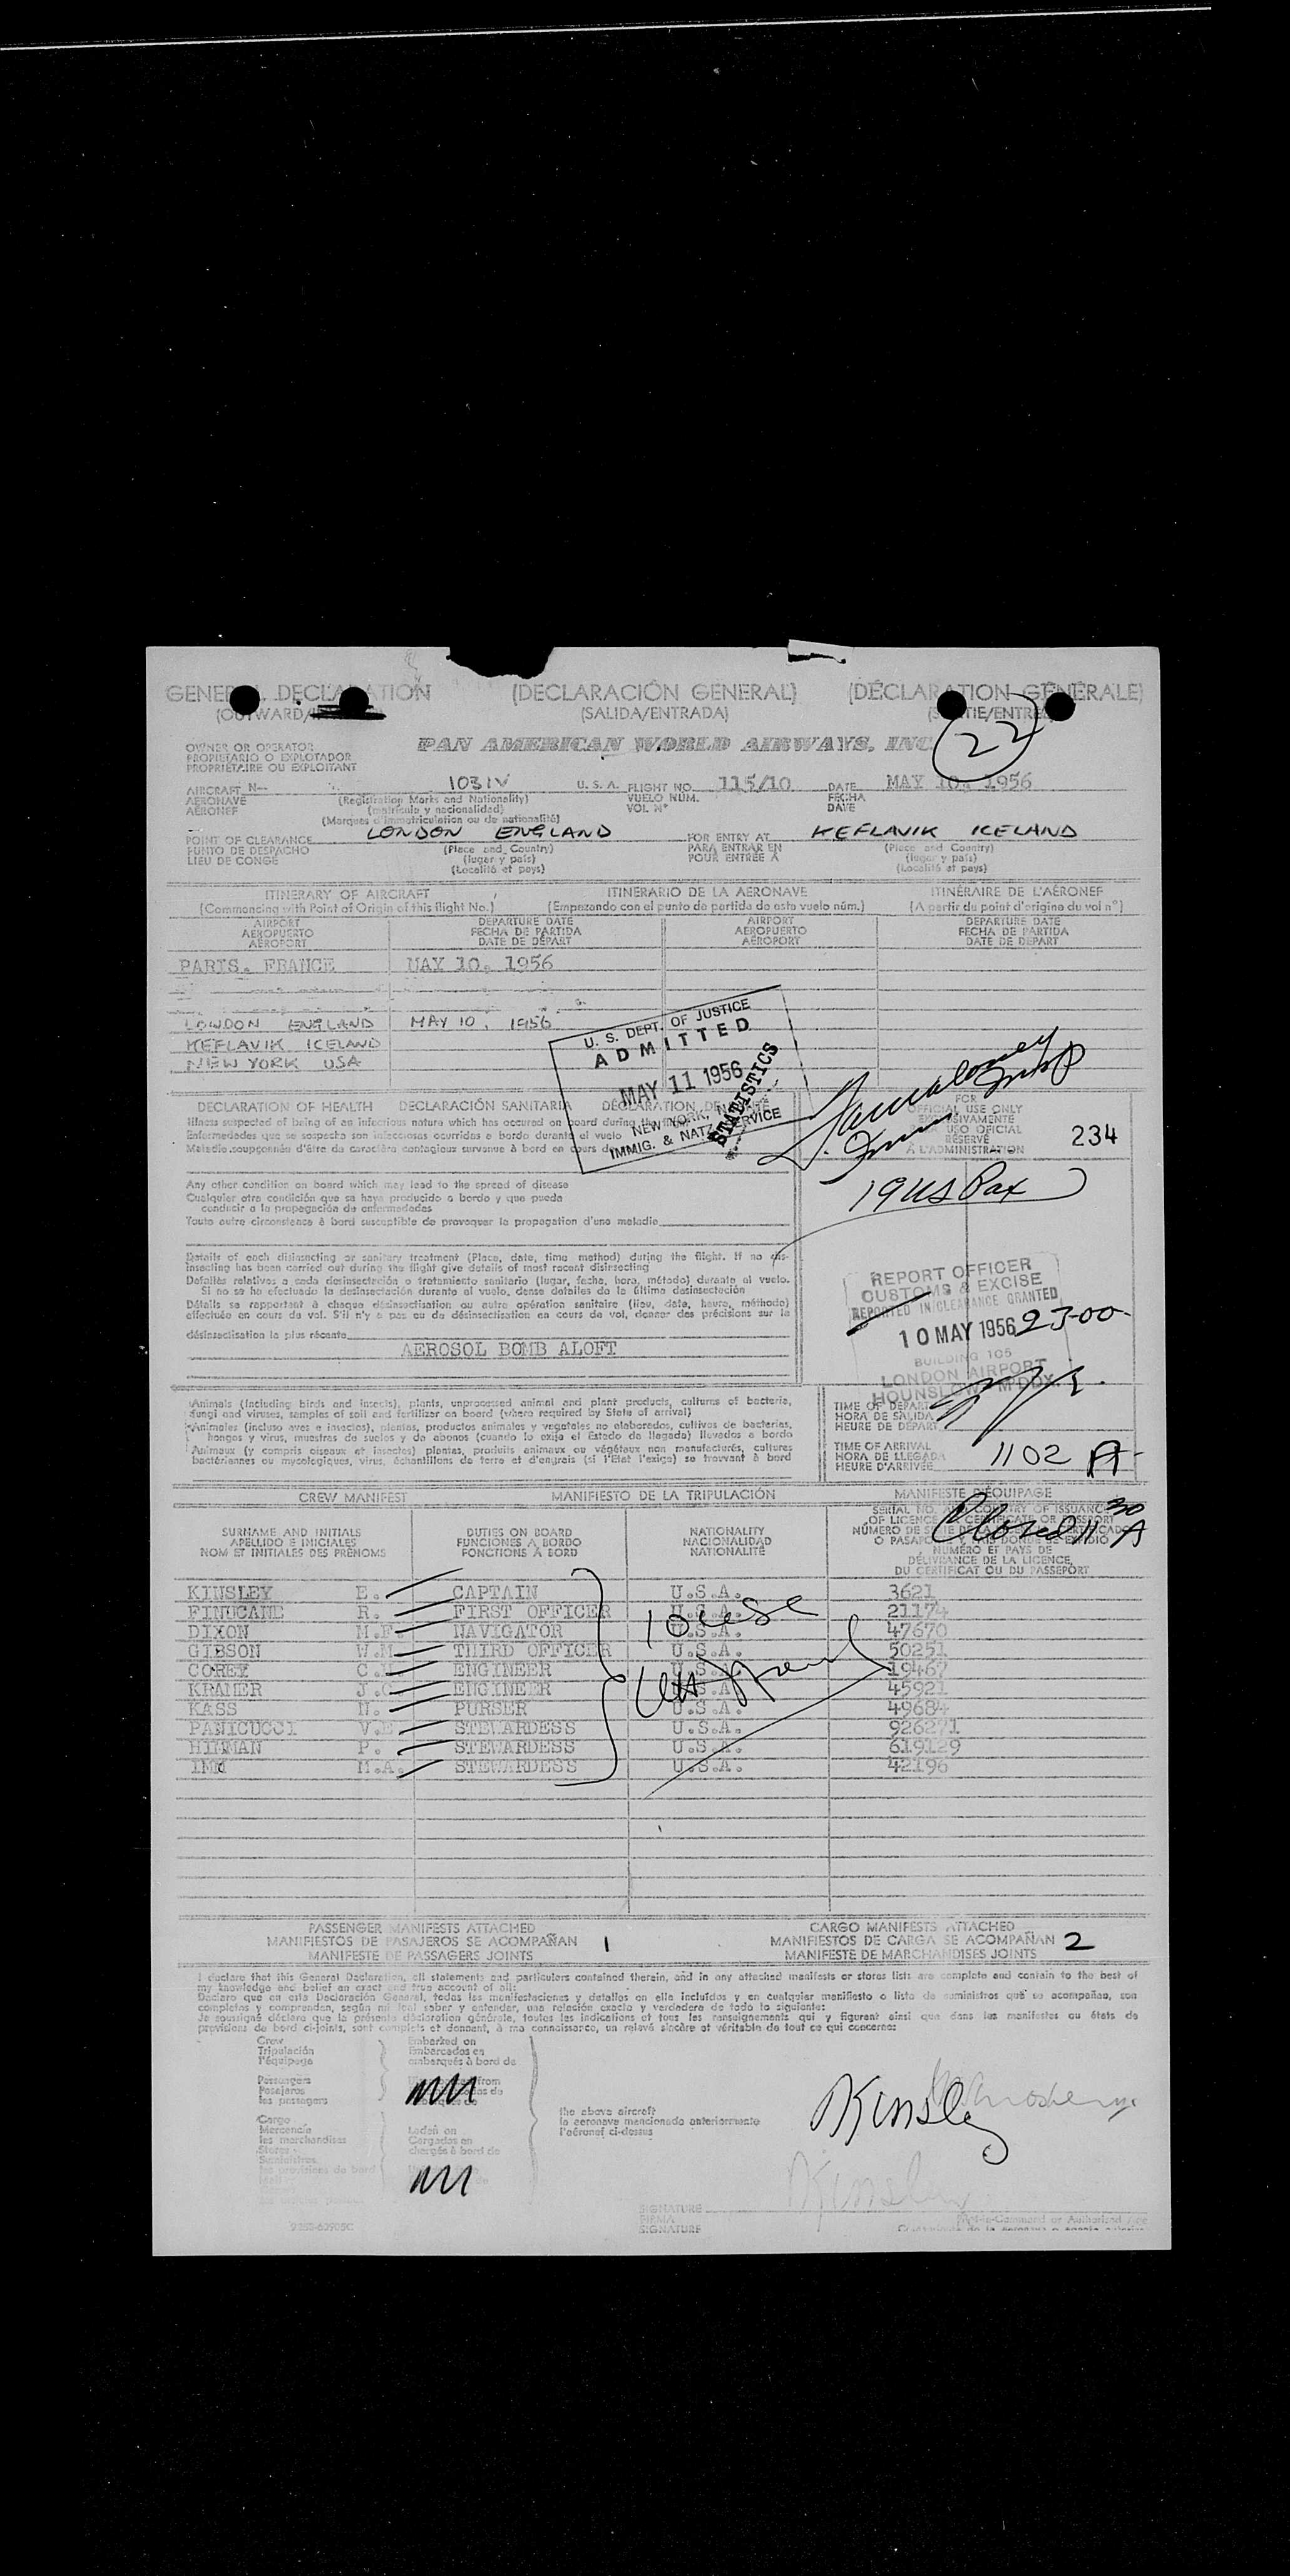 GENERAL DECLARATION (DECLARACIÓN GENERAL) (DÉCLARATION GÉNÉRALE)
(OUTWARD/ (SALIDA/ENTRADA) (SORTIE/ENTRÉE)
22
PAN AMERICAN WORLD AIRWAYS, INC.
OWNER OR OPERATOR
PROPIETARIO O EXPLOTADOR
PROPRIÉTAIRE OU EXPLOITANT
AIRCRAFT N— 1031V U. S. A. FLIGHT NO. 115/10 DATE MAY 10, 1956
AERONAVE (Registration Marks and Nationality) VUELO NUM. FECHA
AÉRONEF (matrícula y nacionalidad) VOL Nº DATE
(Marques d'immatriculation ou de nationalité)
POINT OF CLEARANCE LONDON ENGLAND FOR ENTRY AT KEFLAVIK ICELAND
PUNTO DE DESPACHO (Place and Country) PARA ENTRAR EN (Place and Country)
LIEU DE CONGÉ (lugar y país) POUR ENTRÉE À (lugar y país)
(Localité et pays) (Localité et pays)
ITINERARY OF AIRCRAFT ITINERARIO DE LA AERONAVE ITINÉRAIRE DE L'AÉRONEF
(Commencing with Point of Origin of this flight No.) (Empezando con el punto de partida de este vuelo núm.) (A partir du point d'origine du vol nº)
AIRPORT DEPARTURE DATE AIRPORT DEPARTURE DATE
AEROPUERTO FECHA DE PARTIDA AEROPUERTO FECHA DE PARTIDA
AÉROPORT DATE DE DÉPART AÉROPORT DATE DE DÉPART
PARIS. FRANCE MAY 10, 1956
LONDON ENGLAND MAY 10, 1956
KEFLAVIK ICELAND
NEW YORK USA
U. S. DEPT. OF JUSTICE
ADMITTED
MAY 11 1956
NEW YORK, N.
IMMIG. & NATZ. SERVICE
STATISTICS
DECLARATION OF HEALTH DECLARACIÓN SANITARIA DÉCLARATION DE
Illness suspected of being of an infectious nature which has occured on board during
Enfermedades que se sospecha son infecciosas ocurridas a bordo durante el vuelo
Maladie soupçonnée d'être de caractère contagieux survenue à bord en cours
FOR
OFFICIAL USE ONLY
EXCLUSIVAMENTE
USO OFICIAL
RÉSERVÉ
A L'ADMINISTRATION
234
19 US Pax
Any other condition on board which may lead to the spread of disease
Cualquier otra condición que se haya producido a bordo y que pueda
conducir a la propagación de enfermedades
Toute autre circonstance à bord susceptible de provoquer la propagation d'une maladie
Details of each disinsecting or sanitary treatment (Place, date, time method) during the flight. If no dis-
insecting has been carried out during the flight give details of most recent disinsecting
Detalles relativos a cada desinsectación o tratamiento sanitario (lugar, fecha, hora, método) durante el vuelo.
Si no se ha efectuado la desinsectación durante el vuelo, dense detalles de la última desinsectación
Détails se rapportant à chaque désinsectisation ou autre opération sanitaire (lieu, date, heure, méthode)
effectuée en cours de vol. S'il n'y a pas eu de désinsectisation en cours de vol, donner des précisions sur la
désinsectisation la plus récente
AEROSOL BOMB ALOFT
REPORT OFFICER
CUSTOMS & EXCISE
REPORTED IN/CLEARANCE GRANTED
10 MAY 1956 2300
BUILDING 105
LONDON AIRPORT
HOUNSLOW M'DDX.
Animals (including birds and insects), plants, unprocessed animal and plant products, cultures of bacteria,
fungi and viruses, samples of soil and fertilizer on board (where required by State of arrival)
Animales (incluso aves e insectos), plantas, productos animales y vegetales no elaborados, cultivos de bacterias,
hongos y virus, muestras de suelos y de abonos (cuando lo exija el Estado de llegada) llevados a bordo
Animaux (y compris oiseaux et insectes) plantes, produits animaux ou végétaux non manufacturés, cultures
bactériennes ou mycologiques, virus, échantillons de terre et d'engrais (si l'Etat l'exige) se trouvant à bord
TIME OF DEPART
HORA DE SALIDA
HEURE DE DÉPART
TIME OF ARRIVAL
HORA DE LLEGADA 1102 A
HEURE D'ARRIVÉE
CREW MANIFEST MANIFIESTO DE LA TRIPULACIÓN MANIFESTE D'ÉQUIPAGE
Closed 11 30 A
SURNAME AND INITIALS DUTIES ON BOARD NATIONALITY SERIAL NO. AND COUNTRY OF ISSUANCE
APELLIDO E INICIALES FUNCIONES A BORDO NACIONALIDAD OF LICENCE CERTIFICATE OR PASSPORT
NOM ET INITIALES DES PRÉNOMS FONCTIONS À BORD NATIONALITÉ
NUMÉRO ET PAYS DE
DÉLIVRANCE DE LA LICENCE,
DU CERTIFICAT OU DU PASSEPORT
KINSLEY E. CAPTAIN U.S.A. 3621
FINUCANE R. FIRST OFFICER U.S.A. 21174
DIXON M.F. NAVIGATOR U.S.A. 47670
GIBSON W.M. THIRD OFFICER U.S.A. 50251
COREY C. ENGINEER U.S.A. 19467
KRAMER J.C. ENGINEER U.S.A. 45921
KASS N. PURSER U.S.A. 49684
PANICUCCI V.E. STEWARDESS U.S.A. 926271
HINMAN P. STEWARDESS U.S.A. 619129
M.A. STEWARDESS U.S.A. 42196
PASSENGER MANIFESTS ATTACHED CARGO MANIFESTS ATTACHED
MANIFIESTOS DE PASAJEROS SE ACOMPAÑAN 1 MANIFIESTOS DE CARGA SE ACOMPAÑAN 2
MANIFESTE DE PASSAGERS JOINTS MANIFESTE DE MARCHANDISES JOINTS
I declare that this General Declaration, all statements and particulars contained therein, and in any attached manifests or stores lists are complete and contain to the best of
my knowledge and belief an exact and true account of all:
Declaro que en esta Declaración General, todas las manifestaciones y detalles en ella incluídos y en cualquier manifiesto o lista de suministros que se acompañan, son
completos y comprenden, según mi leal saber y entender, una relación exacta y verdadera de todo lo siguiente:
Je soussigné déclare que la présente déclaration générale, toutes les indications et tous les renseignements qui y figurent ainsi que dans les manifestes ou états de
provisions de bord ci-joints, sont complets et donnent, à ma connaissance, un relevé sincère et véritable de tout ce qui concerne:
Crew Embarked on
Tripulación Embarcados en
l'équipage embarqués à bord de
Passengers from
Pasajeros
les passagers
Cargo
Mercancía Laden on
les marchandises Cargados en
Stores chargés à bord de
Suministros
les provisions de bord
the above aircraft
la aeronave mencionada anteriormente
l'aéronef ci-dessus
Kinsley
Kinsley
SIGNATURE
FIRMA
SIGNATURE
Pilot-in-Command or Authorized